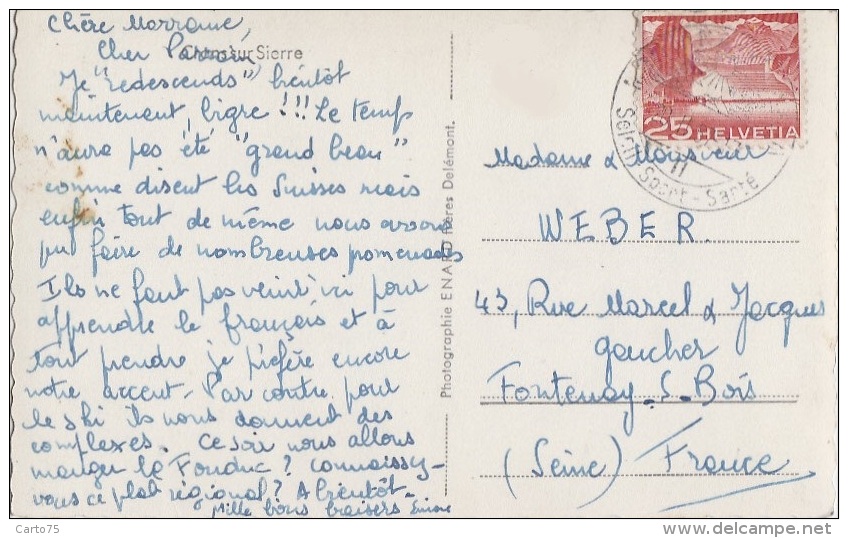 Chère Marraine,
Cher Parrain
Chens sur Sierre
Je "redescends" bientôt
maintenant, bigre !!! Le temps
n'aura pas été "grand beau"
comme disent les Suisses mais
enfin tout de même nous avons
pu faire de nombreuses promenades
Ils ne faut pas venir ici pour
apprendre le français et à
tout prendre je préfère encore
notre accent. Par contre pour
le ski ils nous donnent des
complexes. Ce soir nous allons
manger la Fondue? connaissez-
vous ce plat régional? A bientôt-
Mille bons baisers-
Photographie ENARD frères Delémont.
25 HELVETIA
Sport-Santé
Madame & Monsieur
WEBER.
43, Rue Marcel & Jacques
gaucher
Fontenay-s-Bois
(Seine) France
Carto75
www.delcampe.net